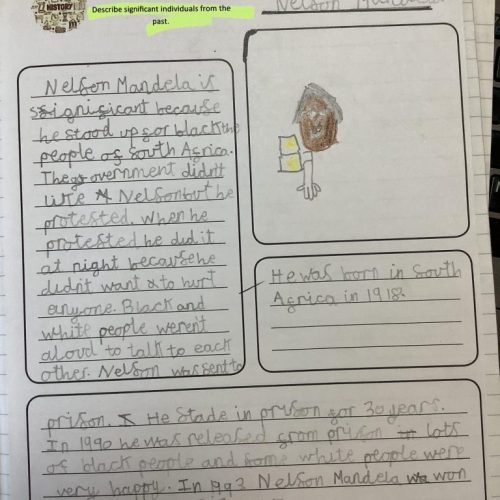 HISTORY
Describe significant individuals from the
past.
Nelson Mandela
Nelson Mandela is
significant because
he stood up for black the
people of South Africa.
The government didn't
like Nelson but he
protested. When he
protested he did it
at night because he
didn't want to hurt
anyone. Black and
white people weren't
aloud to talk to each
other. Nelson was sent to
He was born in South
Africa in 1918.
prison. He Stade in prison for 30 years.
In 1990 he was released from prison lots
of black people and some white people were
very happy. In 1993 Nelson Mandela won